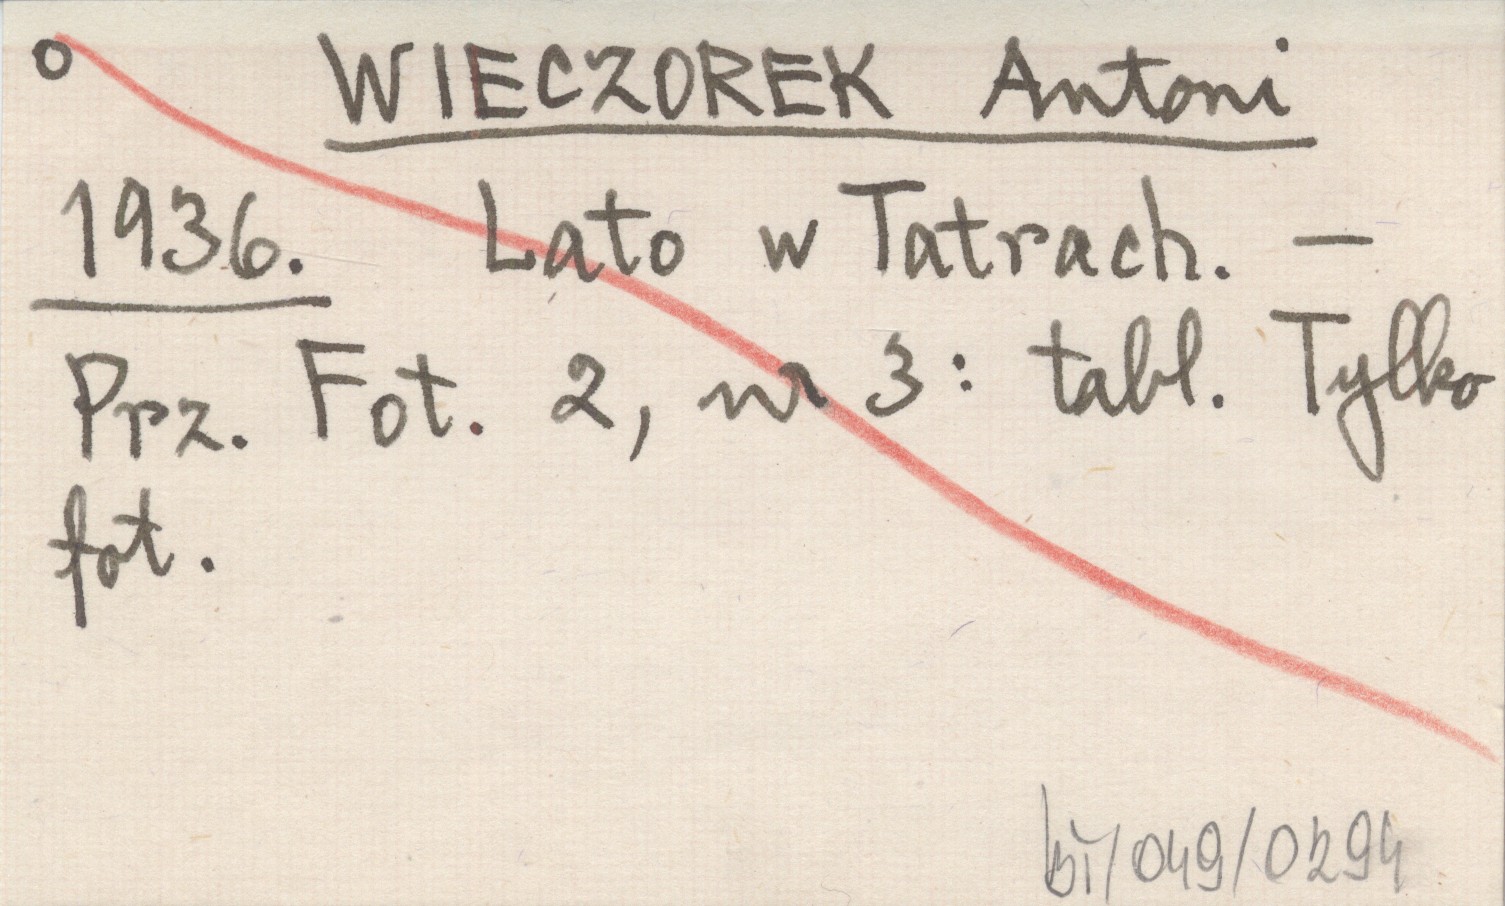 o WIECZOREK Antoni
1936. Lato w Tatrach. —
Prz. Fot. 2, nr 3: tabl. Tylko
fot.
bi/049/0294